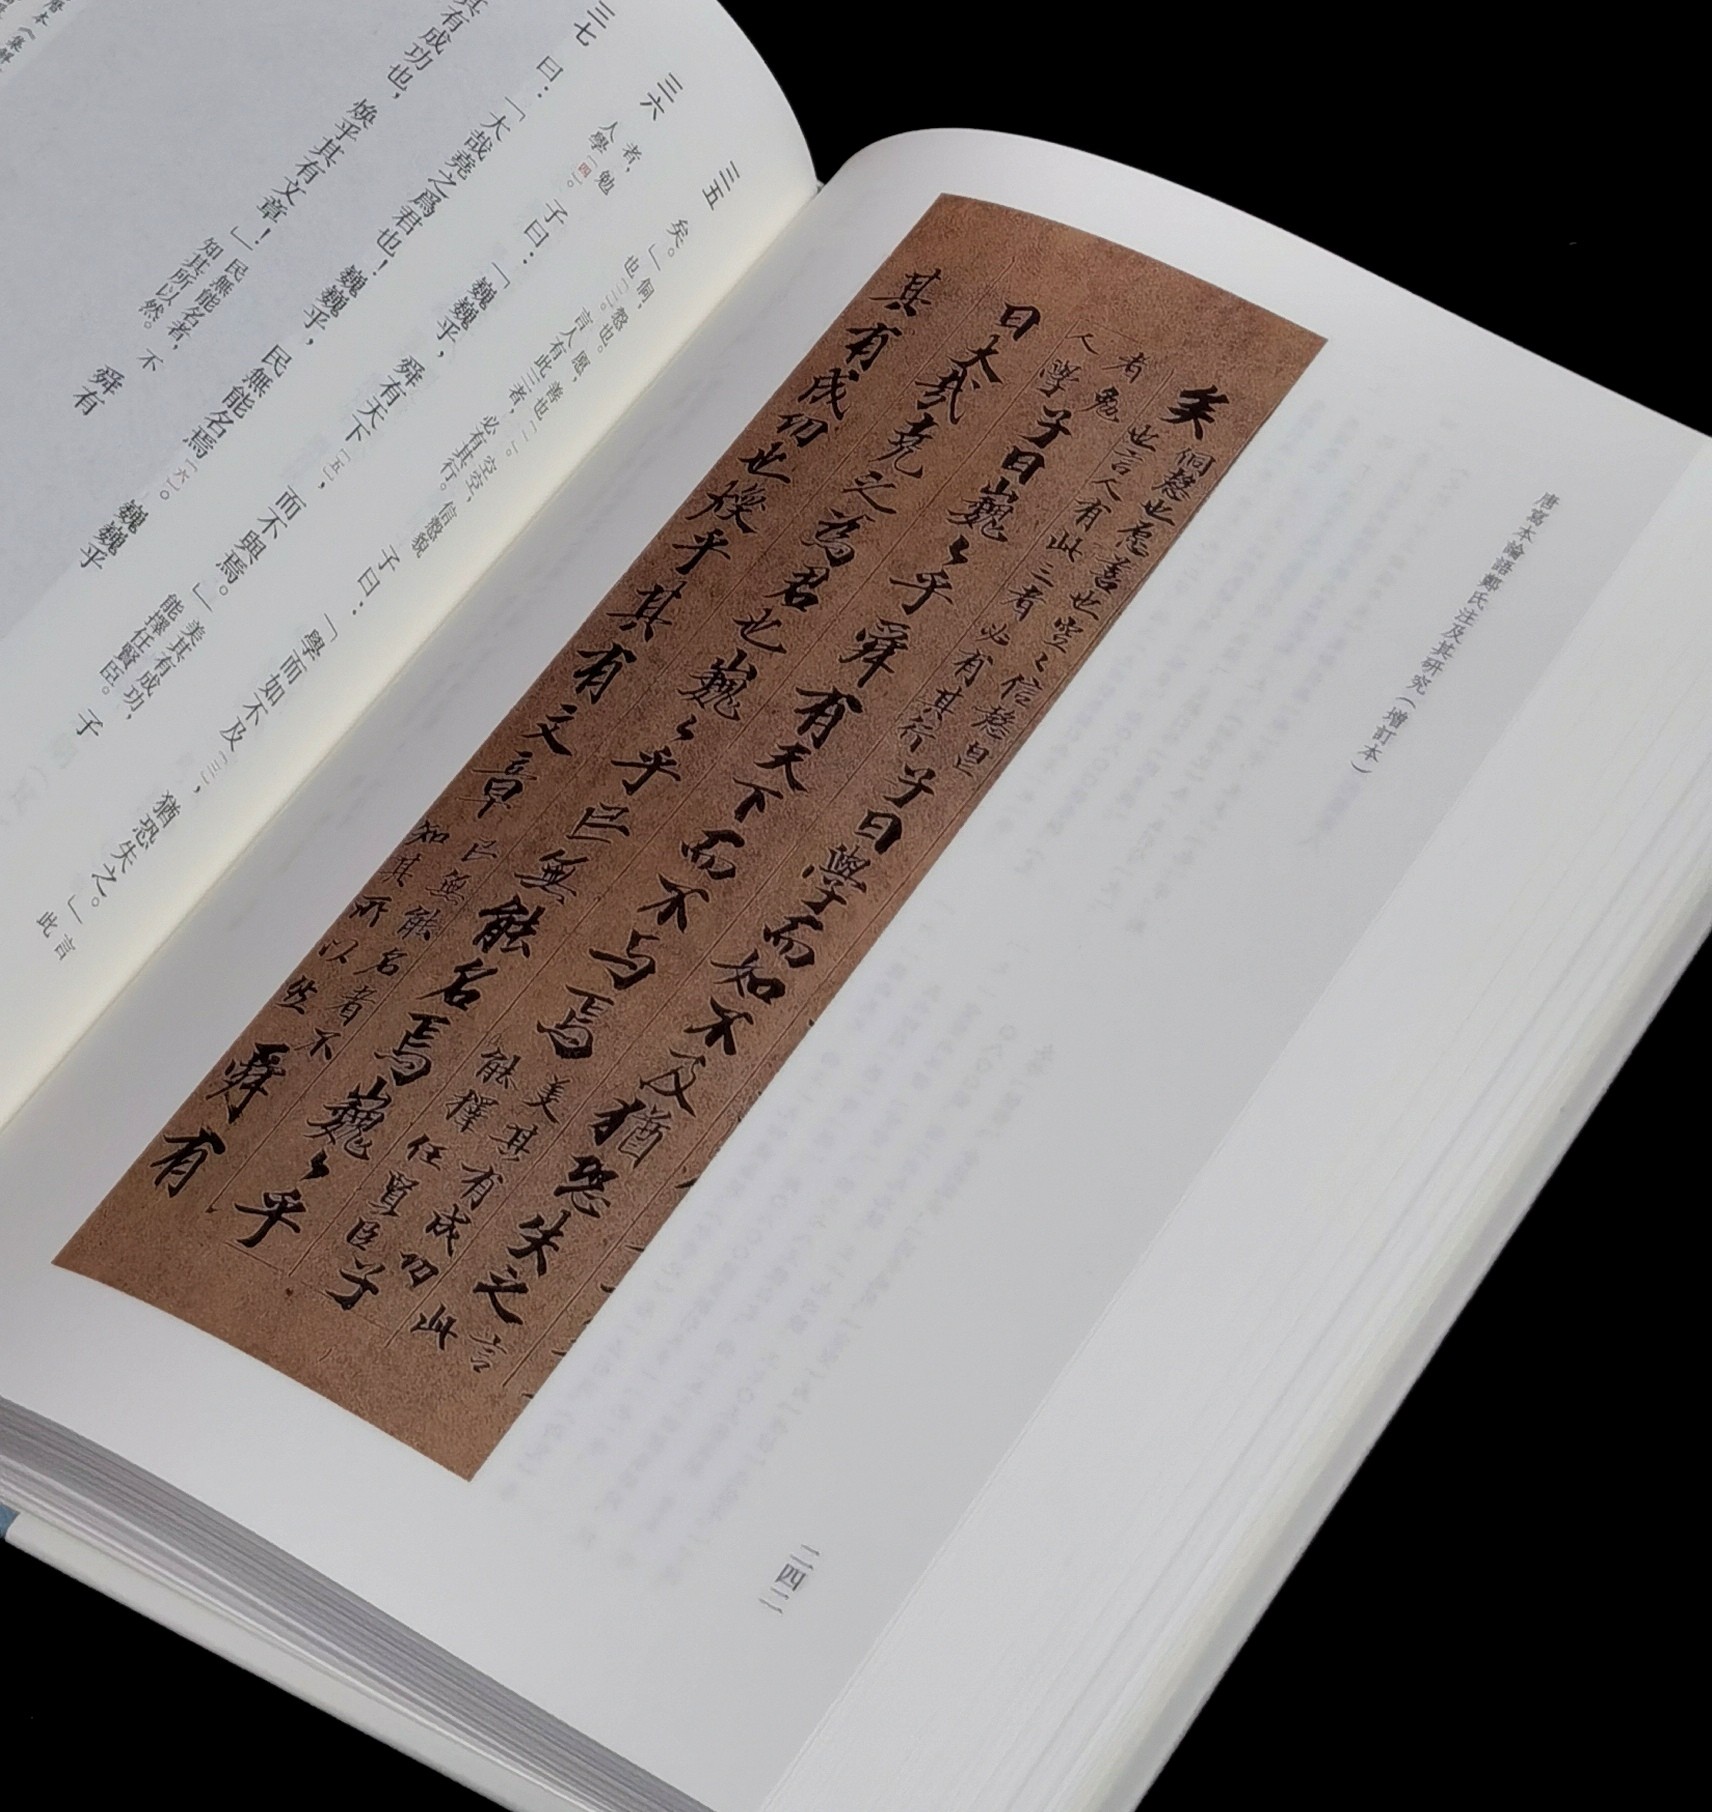 唐寫本論語鄭氏注及其研究（增訂本）
矣侗愨也愿善也空〻信愨皃也言人有此三者必有其行子曰學而知不及猶恐失之言此
者勉人學子曰巍〻乎舜有天下而不与焉美其有成功能擇任賢臣子
曰大哉堯之為君也巍〻乎巳無能名焉巍〻乎
其有成功也煥乎其有文章巳無能名者不知其所以然舜有
二四二
三五 矣。」侗，愨也。愿，善也〔一〕。空空，信愨貌也〔二〕。言人有此三者，必有其行。子曰：「學而如不及〔三〕，猶恐失之。」言此
三六 者，勉人學〔四〕。子曰：「巍巍乎，舜有天下〔五〕，而不與焉。」美其有成功，能擇任賢臣。子
三七 曰：「大哉堯之爲君也！巍巍乎，民無能名焉〔六〕。巍巍乎
其有成功也，煥乎其有文章！」民無能名者，不知其所以然。舜有